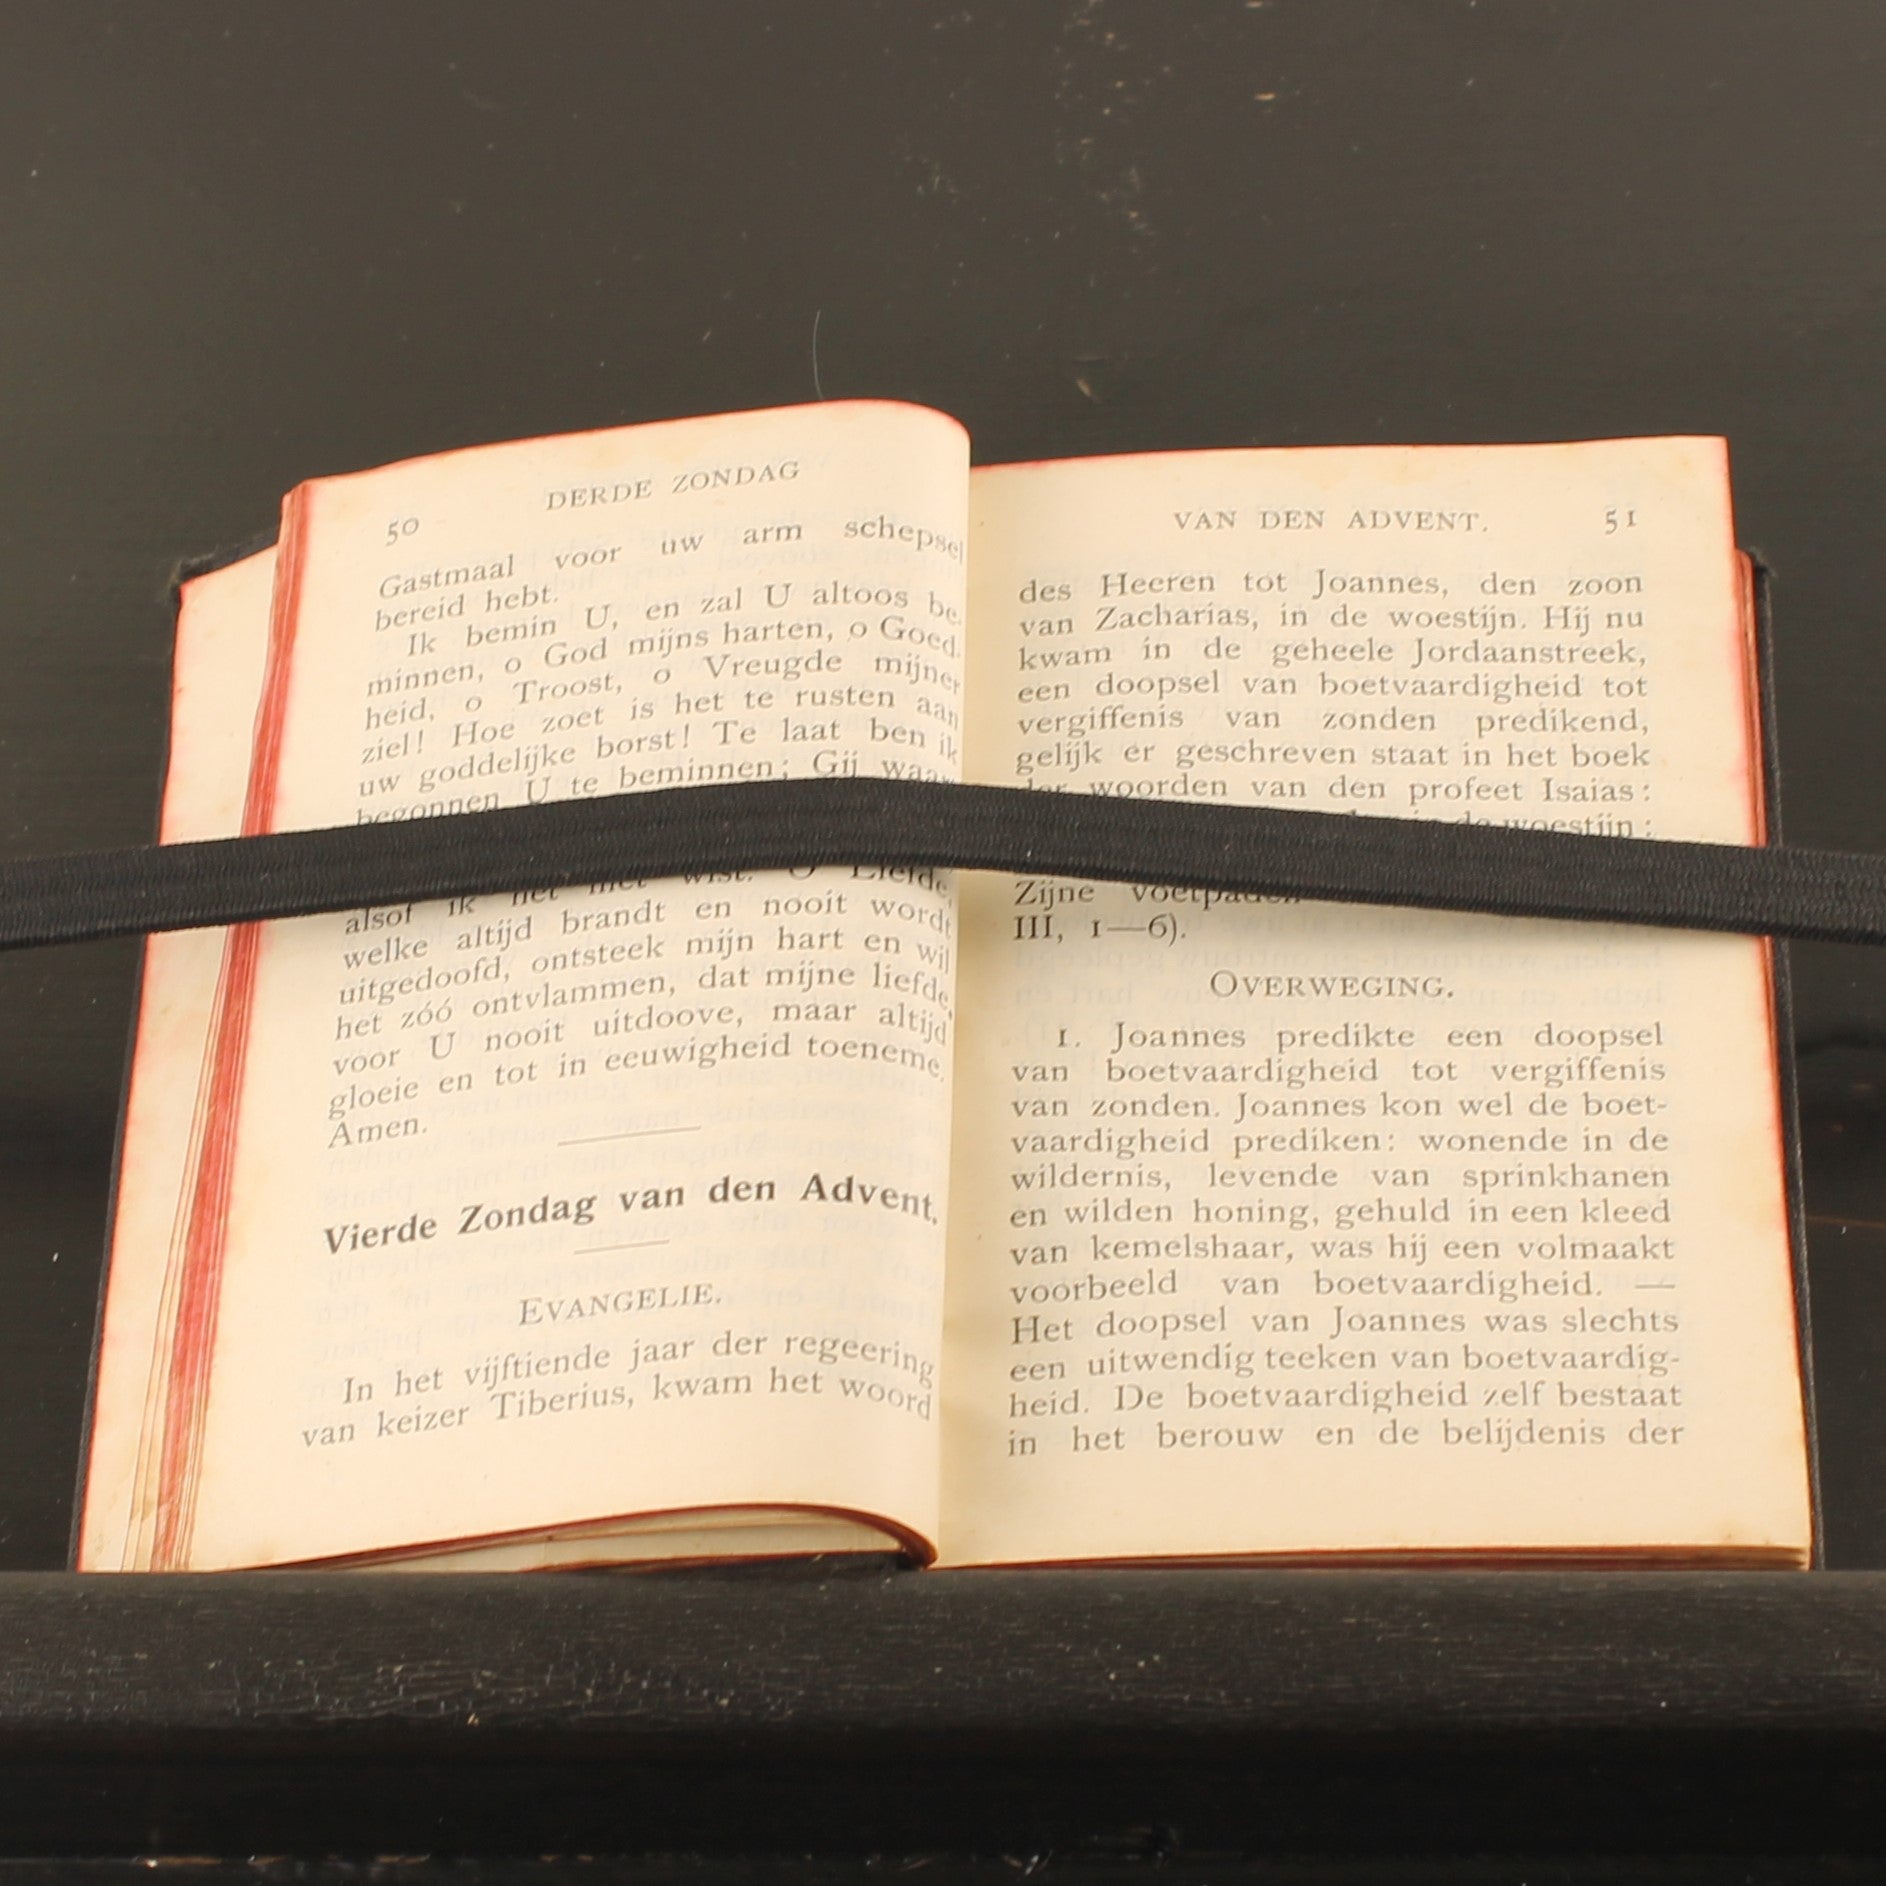 50
DERDE ZONDAG
Gastmaal voor uw arm schepsel
bereid hebt.
Ik bemin U, en zal U altoos be-
minnen, o God mijns harten, o Goed-
heid, o Troost, o Vreugde mijner
ziel! Hoe zoet is het te rusten aan
uw goddelijke borst! Te laat ben ik
begonnen U te beminnen; Gij waart
alsof ik het niet wist. O Liefde,
welke altijd brandt en nooit wordt
uitgedoofd, ontsteek mijn hart en wil
het zóó ontvlammen, dat mijne liefde,
voor U nooit uitdoove, maar altijd
gloeie en tot in eeuwigheid toeneme.
Amen.
Vierde Zondag van den Advent.
EVANGELIE.
In het vijftiende jaar der regeering
van keizer Tiberius, kwam het woord
VAN DEN ADVENT.
51
des Heeren tot Joannes, den zoon
van Zacharias, in de woestijn. Hij nu
kwam in de geheele Jordaanstreek,
een doopsel van boetvaardigheid tot
vergiffenis van zonden predikend,
gelijk er geschreven staat in het boek
der woorden van den profeet Isaias:
in de woestijn:
Zijne voetpaden
III, 1—6).
OVERWEGING.
1. Joannes predikte een doopsel
van boetvaardigheid tot vergiffenis
van zonden. Joannes kon wel de boet-
vaardigheid prediken: wonende in de
wildernis, levende van sprinkhanen
en wilden honing, gehuld in een kleed
van kemelshaar, was hij een volmaakt
voorbeeld van boetvaardigheid. —
Het doopsel van Joannes was slechts
een uitwendig teeken van boetvaardig-
heid. De boetvaardigheid zelf bestaat
in het berouw en de belijdenis der